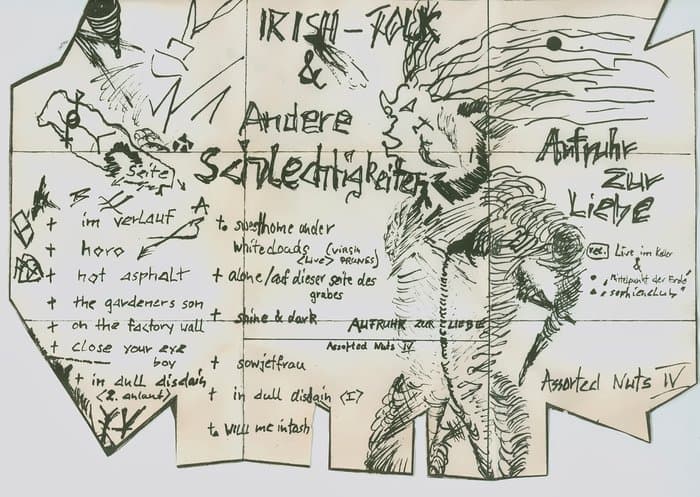 IRISH-FOLK
&
Andere
Schlechtigkeiten
Seite
A
+ im verlauf
+ horo
+ hot asphalt
+ the gardeners son
+ on the factory wall
+ close your eye
boy
+ in dull disdain
<2. anlauf>
white clouds (virgin
<Live> PRUNES)
+ alone/auf dieser seite des
grabes
+ shine & dark
AUFRUHR ZUR LIEBE
Assorted Nuts IV
+ sowjetfrau
+ in dull disdain <I>
will mc intosh
Aufruhr
zur
Liebe
rec. Live im Keller
&
"Mittelpunkt der Erde"
Assorted Nuts IV